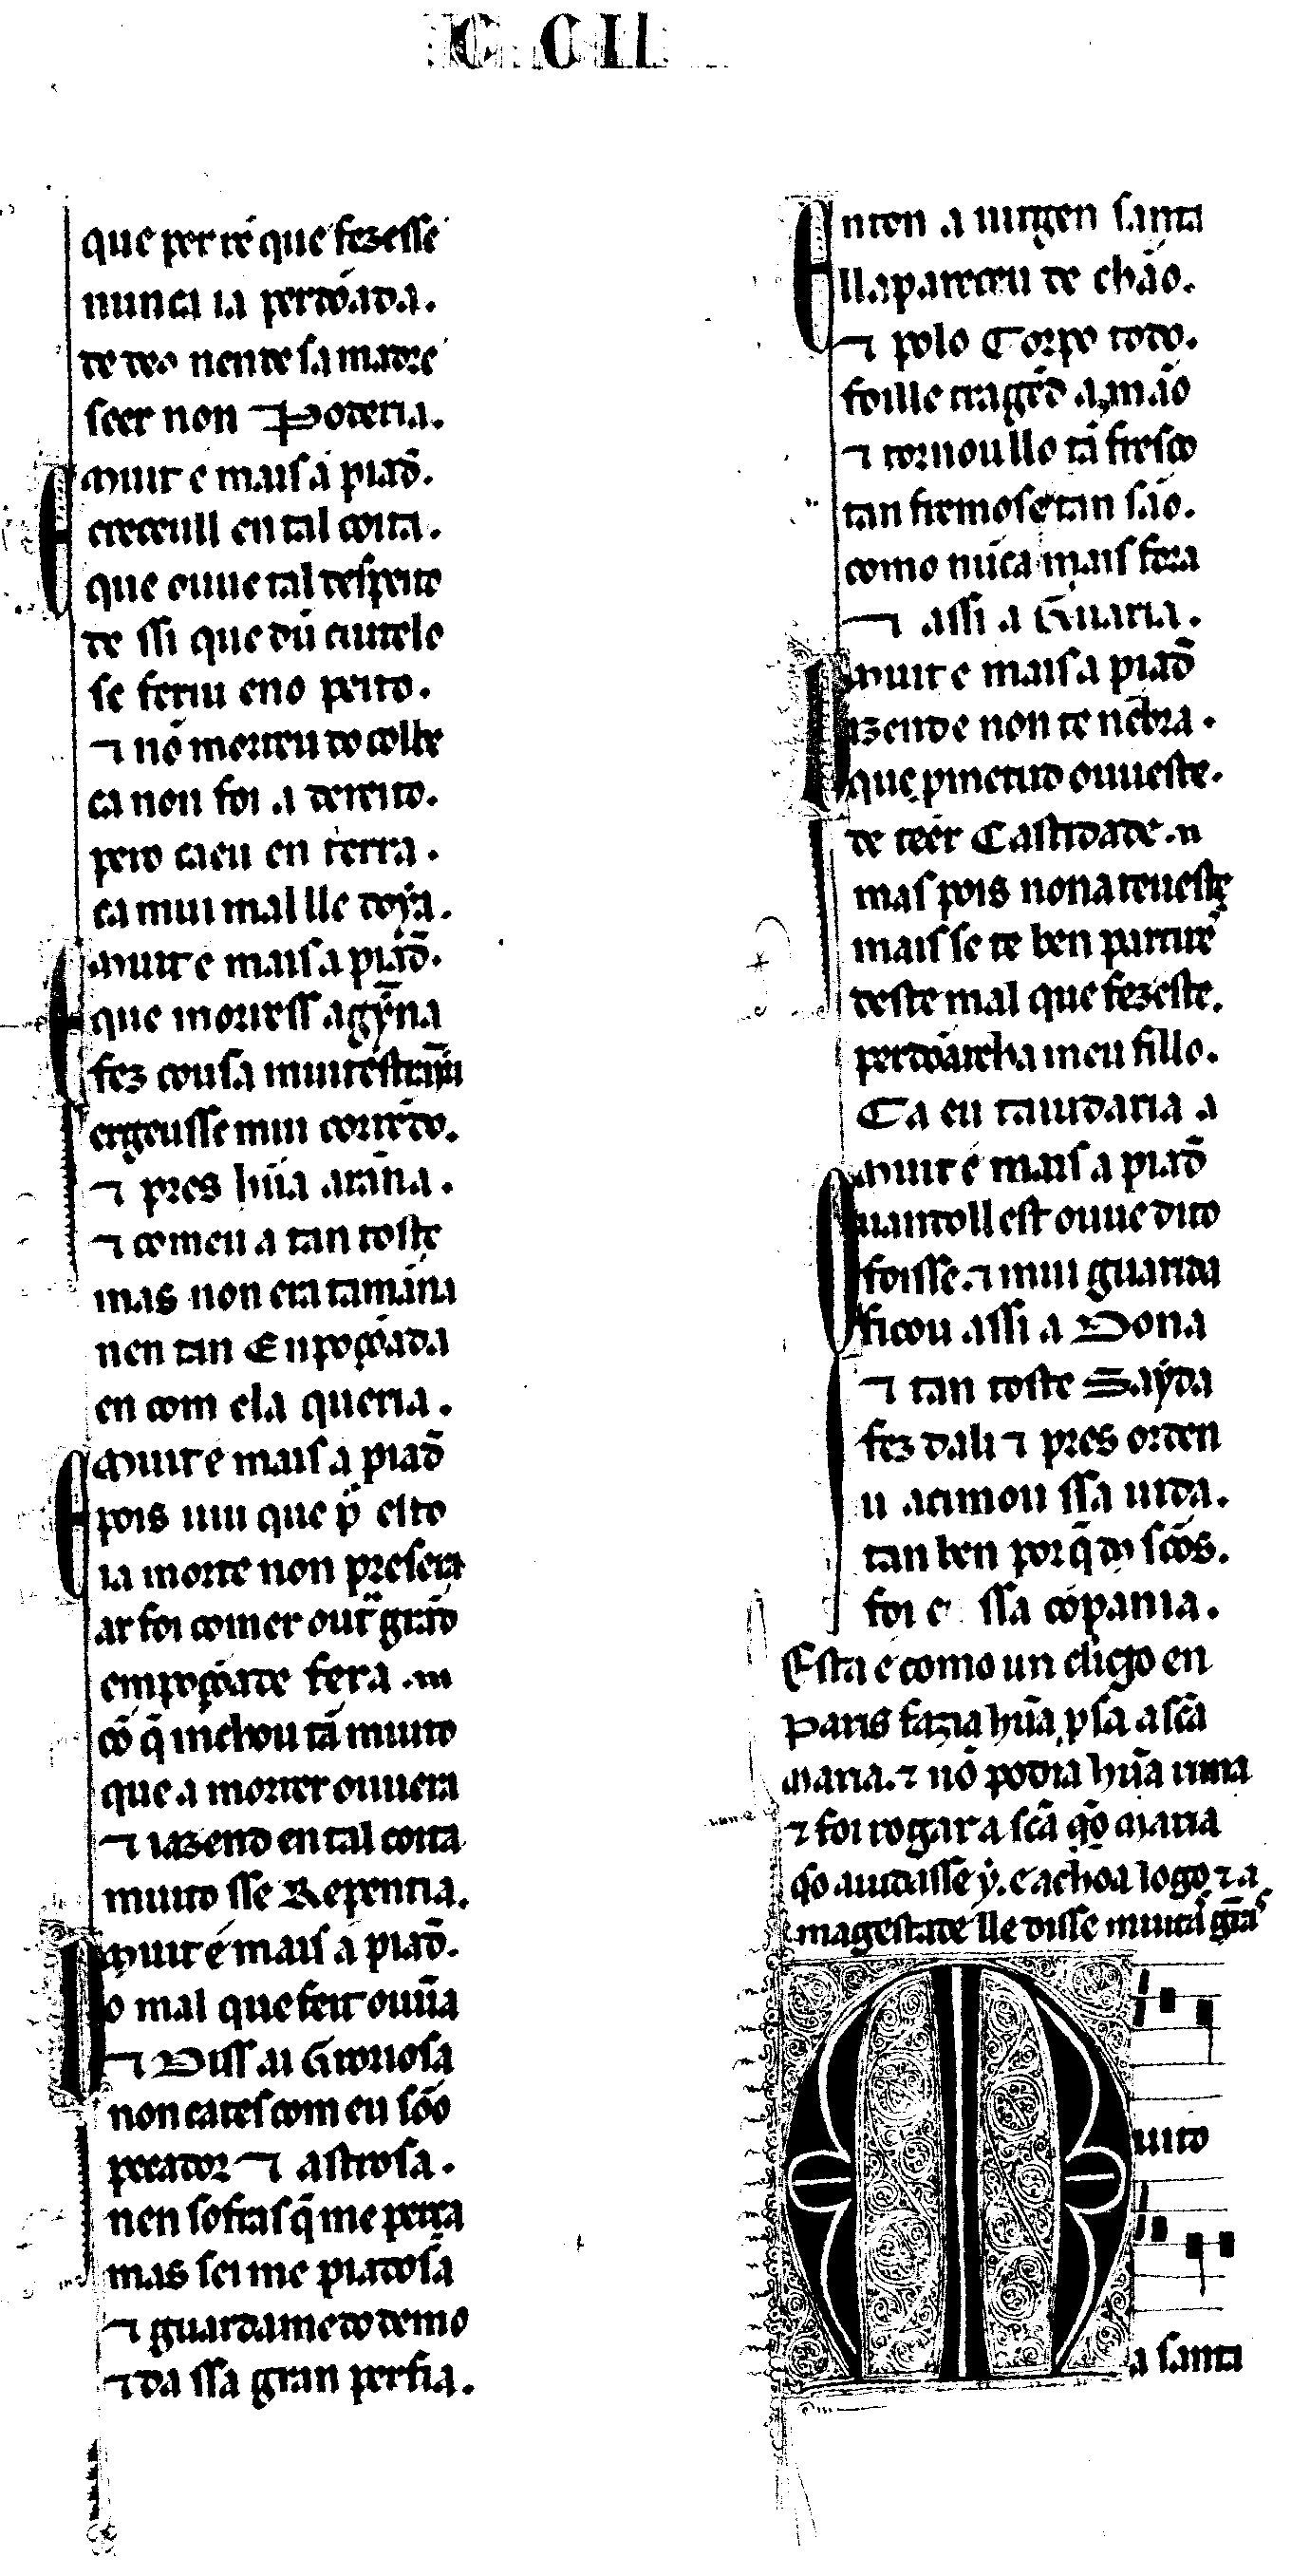 C CII
que per rē que fezesse
nunca ia perdõada.
de deo nen de sa madre
seer non ⁊ Poderia.
Muit e mais a piad̄.
E creceull en tal coita.
que ouue tal despeito
de ssi que dũ cuitelo
se feriu eno peito.
⁊ nõ morreu do colbe
ca non foi a dereito.
pero caeu en terra.
ca mui mal lle doýa.
Muit e mais a piad̄.
E que morress agỹna
fez cousa muit estraỹa
ergeusse mui correndo.
⁊ pres hũa arãna.
⁊ comeu a tan toste
mas non era tamãna
nen tan Enpoçõada
en com ela queria.
Muit e mais a piad̄
E pois uiu que p̃ esto
ia morte non presera
ar foi comer outr̃ grãd
empoçõade fera.
cõ q̃ inchou tã muito
que a morrer ouuera
⁊ iazend en tal coita
muito sse Repentia.
Muit é mais a piad̄.
Do mal que feit ouũa
⁊ Diss ai Groriosa
non cates com eu sõo
pecador ⁊ astrosa.
nen sofras q̃ me perça
mas sei me piadosa
⁊ guardame do demo
⁊ da ssa gran perfia.
Enton a uirgen santa
llapareceu de chão.
⁊ polo Corpo todo.
foille tragẽd a mão
⁊ tornoullo tã fresco
tan fremos e tan são.
como nũca mais fora
⁊ assi a Guaria.
Muit e mais a piad̄
Dizende non te nẽbra.
que pmetud ouueste.
de teer Castidade.
mas pois non a teueste
mais se te ben partirẽ
deste mal que fezeste.
perdõarcha meu fillo.
Ca eu taiudaria a
Muit é mais a piad̄
Quantoll est ouue dito
foisse. ⁊ mui guarida
ficou assi a Dona
⁊ tan toste Saýda
fez dali ⁊ pres orden
u acimou ssa uida.
tan ben por q̃ dos scõs.
foi e ssa cõpania.
Esta é como un cligo en
Paris fazia hũa psa a scã
Maria. ⁊ nõ podia hũa rima
⁊ foi rogar a scã q̃o Maria
q̃o aiudasse ý. e achoa logo ⁊ a
magestade lle disse muitas gr̃as
Muito
a santa